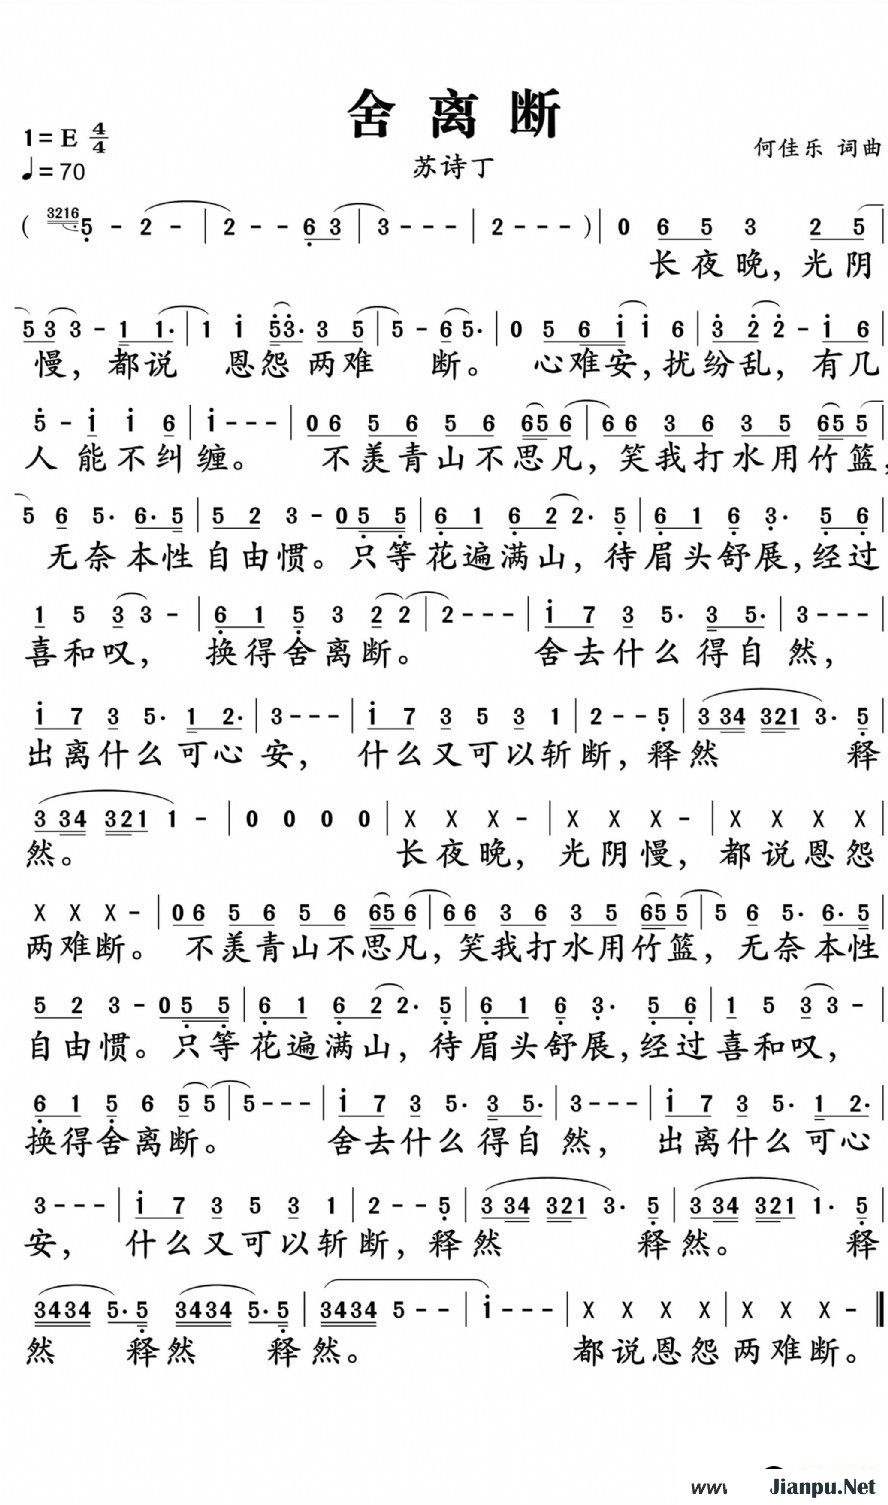 舍离断
1=E 4/4
苏诗丁
何佳乐 词曲
♩=70
( 3216 5 - 2 - | 2 - - 6 3 | 3 - - - | 2 - - - ) | 0 6 5 3 2 5 |
长夜晚，光阴
5 3 3 - 1 1· | 1 i 5 3· 3 5 | 5 - 6 5· | 0 5 6 i i 6 | 3 2 2 - i 6 |
慢，都说 恩怨两难 断。 心难安，扰纷乱，有几
5 - i i 6 | i - - - | 0 6 5 6 5 6 65 6 | 6 6 3 6 3 5 65 5 |
人 能不纠缠。 不羡青山不思凡，笑我打水用竹篮，
5 6 5· 6· 5 | 5 2 3 - 0 5 5 | 6 1 6 2 2· 5 | 6 1 6 3· 5 6 |
无奈本性自由惯。只等花遍满山，待眉头舒展，经过
1 5 3 3 - | 6 1 5 3 2 2 | 2 - - - | i 7 3 5· 3 5· | 3 - - - |
喜和叹， 换得舍离断。 舍去什么得自然，
i 7 3 5· 1 2· | 3 - - - | i 7 3 5 3 1 | 2 - - 5 | 3 34 321 3· 5 |
出离什么可心安， 什么又可以斩断，释然 释
3 34 321 1 - | 0 0 0 0 | X X X - | X X X - | X X X X |
然。 长夜晚，光阴慢，都说恩怨
X X X - | 0 6 5 6 5 6 65 6 | 6 6 3 6 3 5 65 5 | 5 6 5· 6· 5 |
两难断。不羡青山不思凡，笑我打水用竹篮，无奈本性
5 2 3 - 0 5 5 | 6 1 6 2 2· 5 | 6 1 6 3· 5 6 | 1 5 3 3 - |
自由惯。只等花遍满山，待眉头舒展，经过喜和叹，
6 1 5 6 5 5 | 5 - - - | i 7 3 5· 3 5· | 3 - - - | i 7 3 5· 1 2· |
换得舍离断。 舍去什么得自然， 出离什么可心
3 - - - | i 7 3 5 3 1 | 2 - - 5 | 3 34 321 3· 5 | 3 34 321 1· 5 |
安， 什么又可以斩断，释然 释然。 释
3434 5· 5 3434 5· 5 | 3434 5 - - | i - - - | X X X X | X X X - ‖
然 释然 释然。 都说恩怨两难断。
www.
Jianpu.Net